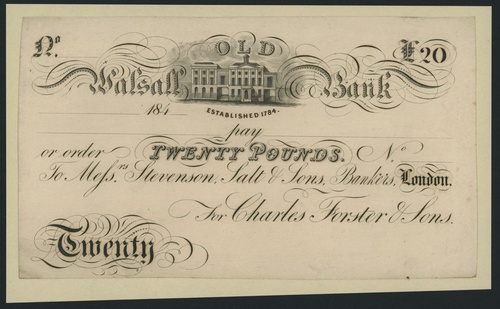 Nº. OLD £20
Walsall Bank
184 ESTABLISHED 1784.
pay
or order TWENTY POUNDS. Nº
To Messrs. Stevenson, Salt & Sons, Bankers, London.
For Charles Forster & Sons.
Twenty